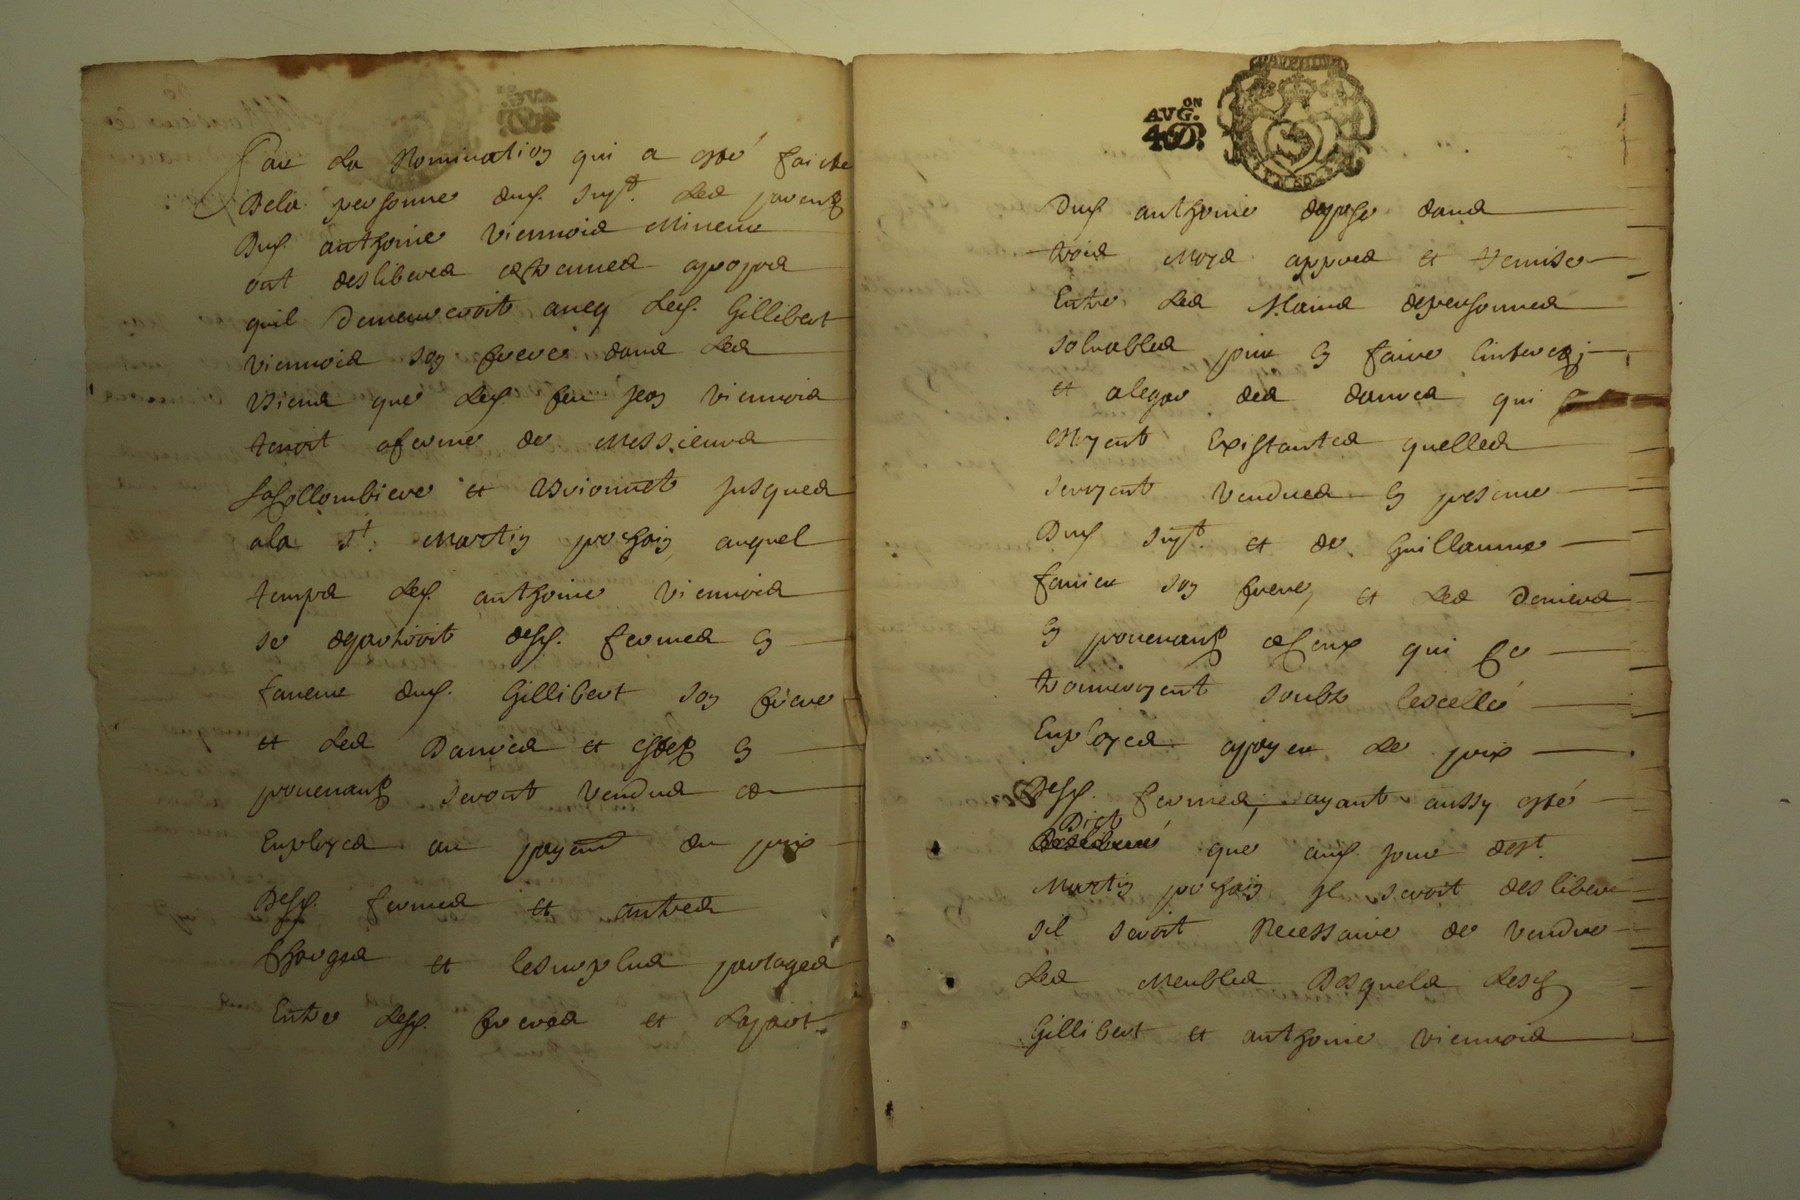 Par La Nomination qui a esté faicte
Dela personne dud. supt. Les parents
Dud anthoine Viennois Mineur
ont deslibérés
quil Demeureroit avecq Led. Gillibert
Viennois son frere dans Les
Biens que Led feu Jean Viennois
tenoit aferme de Messieurs
La Collombiere et Brionnet Jusques
ala St. Martin prochain auquel
temps Led. anthoine Viennois
se departiroit desd. fermes en
faveur dud. Gillibert son frere
et Les Danrées et en
provenants seront Vendus et
Employés au payent du prix
Desd. fermes et autres
Charges et lesurplus partagés
Entre Lesd. freres et Lapart
AVG.ON
40D.
Dud anthoine dans
trois Moys appres et Remise
Entre Les Mains depersonnes
solvables pour en faire linterest
et alegar des danrées qui se
Existantes quelles
seroyent Vendues en presence
Dud supt. et de Guillaume
son frere, et Les Deniers
en provenants et Ceux qui se
trouveroyent soubz lescellé
Employés apayer Le prix
Desd. fermes, ayant aussy esté
Dict
que aud. jour dest.
Martin prochain Il seroit desliberé
sil seroit Necessaire de Vendre
Les Meubles Desquels Lesd
Gillibert et anthoine Viennois